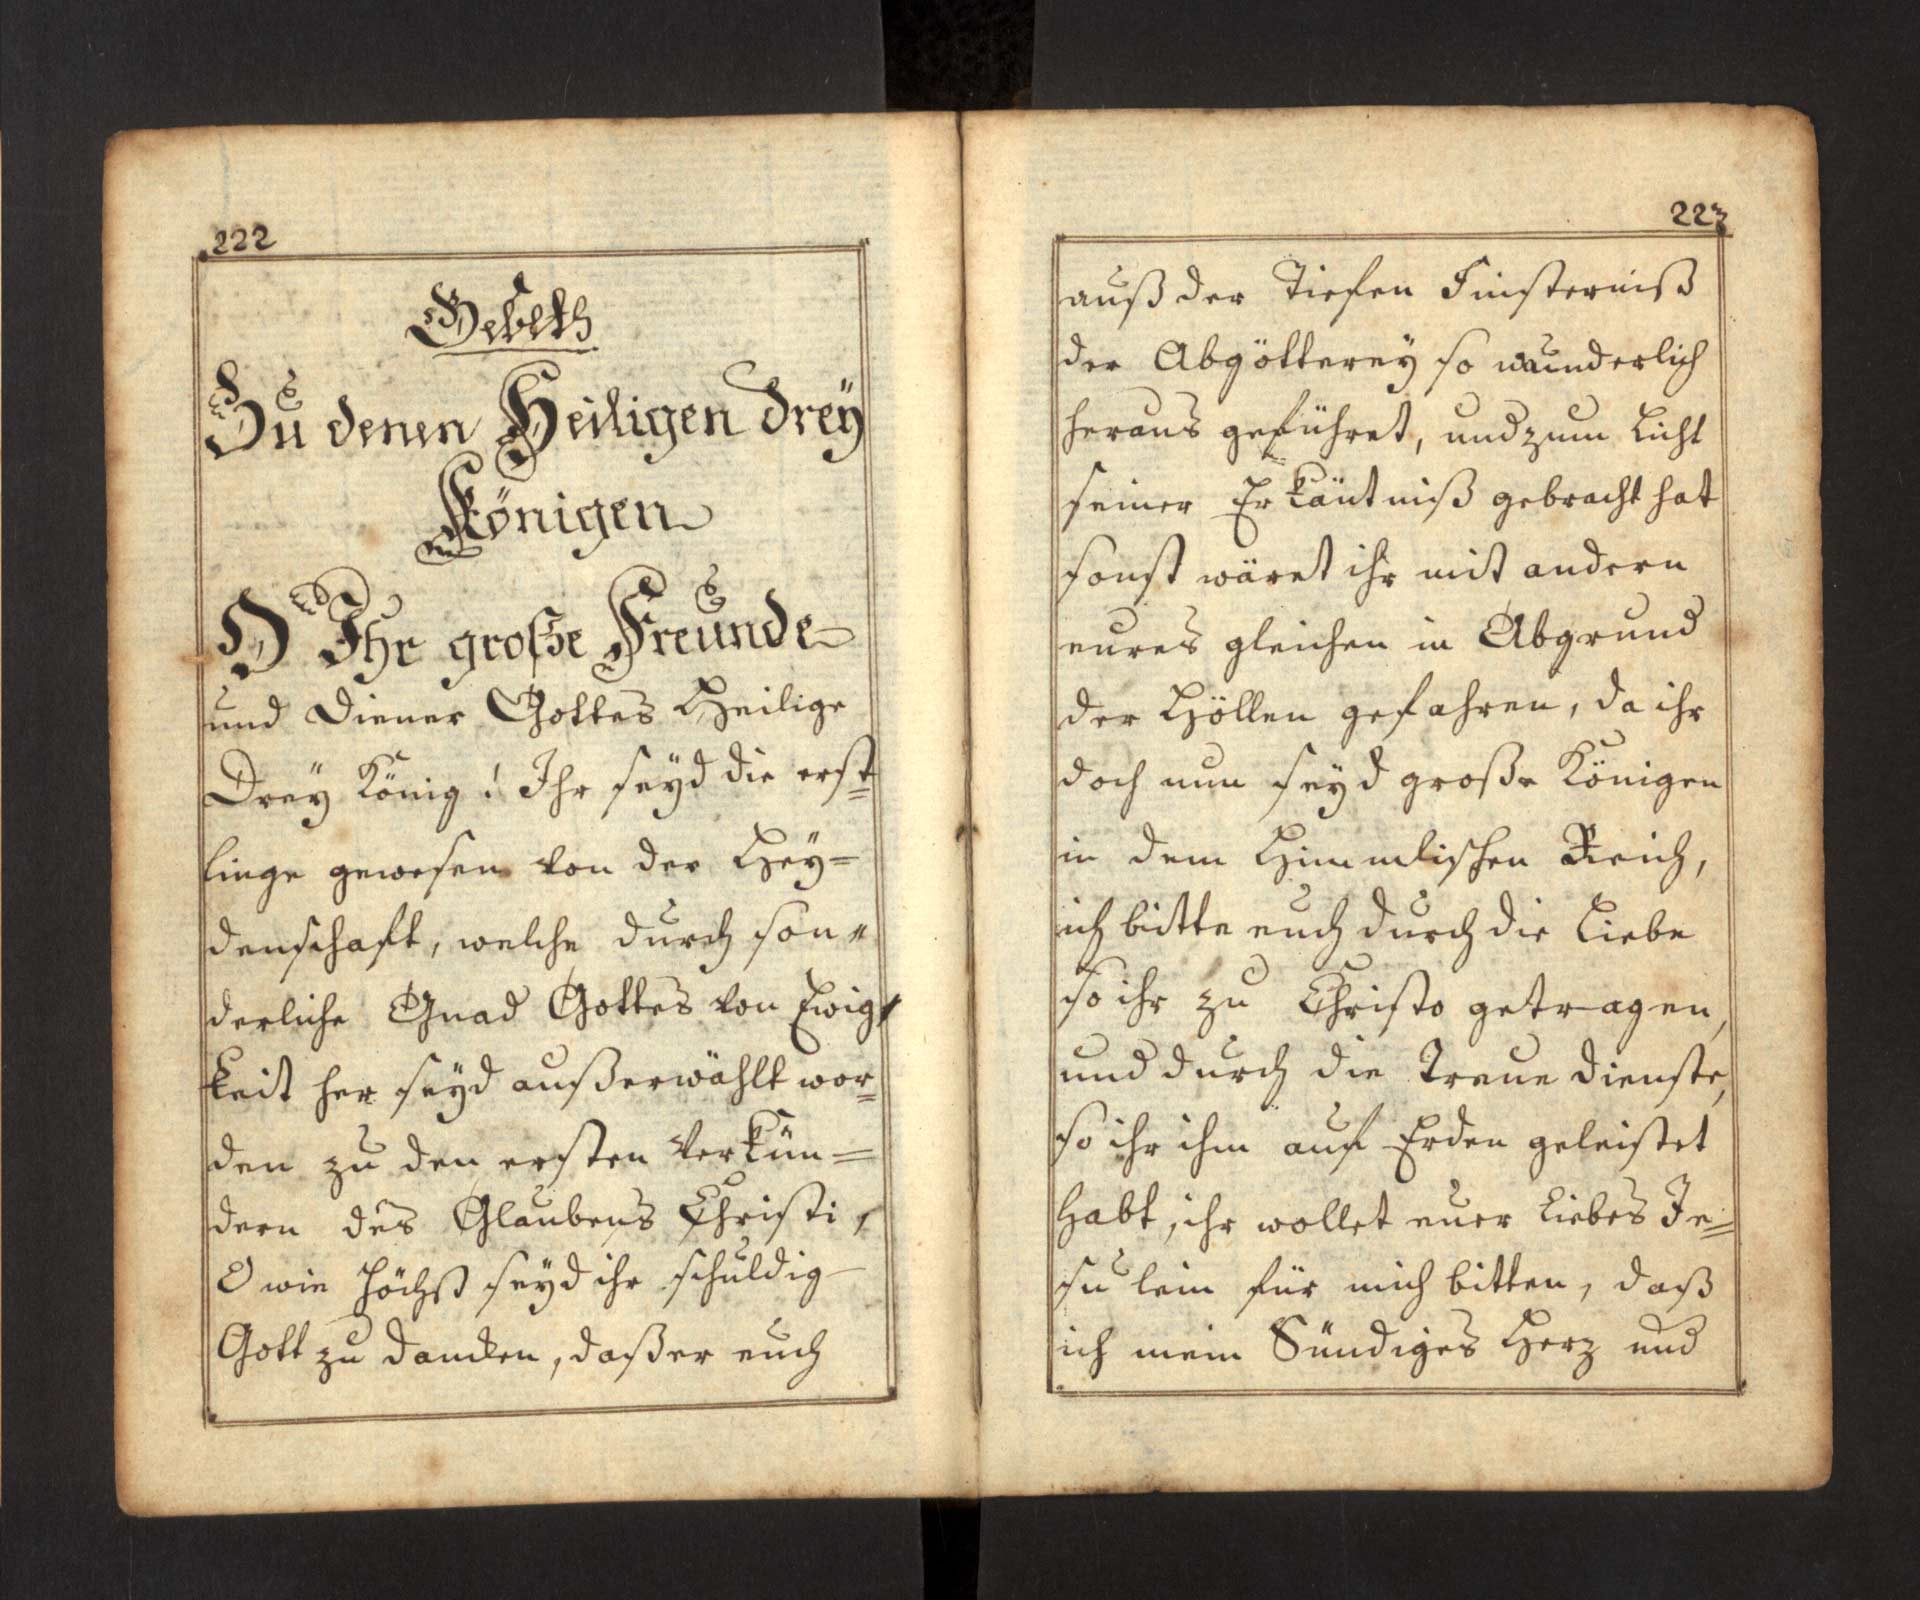 222
Gebeth
Zu denen Heiligen dreÿ
Königen
O Ihr große Freunde
und Diener Gottes Heilige
Dreÿ König! Ihr seÿd die erst=
linge gewesen von der Heÿ=
denschaft, welche durch son=
derliche Gnad Gottes von Ewig=
keit her seÿd außerwählt wor=
den zu den ersten Verkün=
dern des Glaubens Christi,
O wie höchst seÿd ihr schuldig
Gott zu dancken, daß er euch
223
auß der Tiefen Finsterniß
der Abgötterey so wunderlich
heraus geführet, und zum Licht
seiner Erkäntniß gebracht hat
sonst wäret ihr mit andern
eures gleichen in Abgrund
der Höllen gefahren, da ihr
doch nun seÿd große Königen
in dem Himmlischen Reich,
ich bitte euch durch die Liebe
so ihr zu Christo getragen,
und durch die Treue Dienste,
so ihr ihm auf Erden geleistet
Habt, ihr wollet euer Liebes Je=
sulein für mich bitten, daß
ich mein Sündiges Herz und